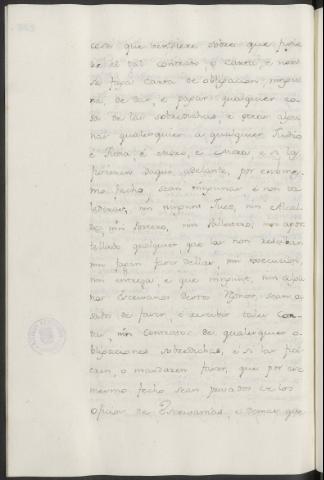 cosa que vendiere sobre que furie
re el tal contrato, o carta, e non
se faga carta de obligacion, ninguna
na, de dar, e pagar qualquier co
sa de las sobredichas, e otras algu
nas qualesquier a qualquier Judio
e Judia, e Moro, e Mora, e si las
ficieren daqui adelante, por ese mes
mo fecho, sean ningunas e non va
lederas, nin ningunt Juez, nin Alcal
de, nin Portero, nin Ballestero, nin apor
tellado qualquier, que las non reciban
nin fagan facer dellas, nin execucion,
nin entrega, e que ningunt, nin algu
nos Escrivanos destos Reynos, sean o
sados de facer, e recibir tales Car
tas, nin Contratos de qualesquier o
bligaciones sobredichas, e si las fici
eren, o mandaren facer, que por ese
mesmo fecho sean privados de los
oficios de Escrivanias, e demas que